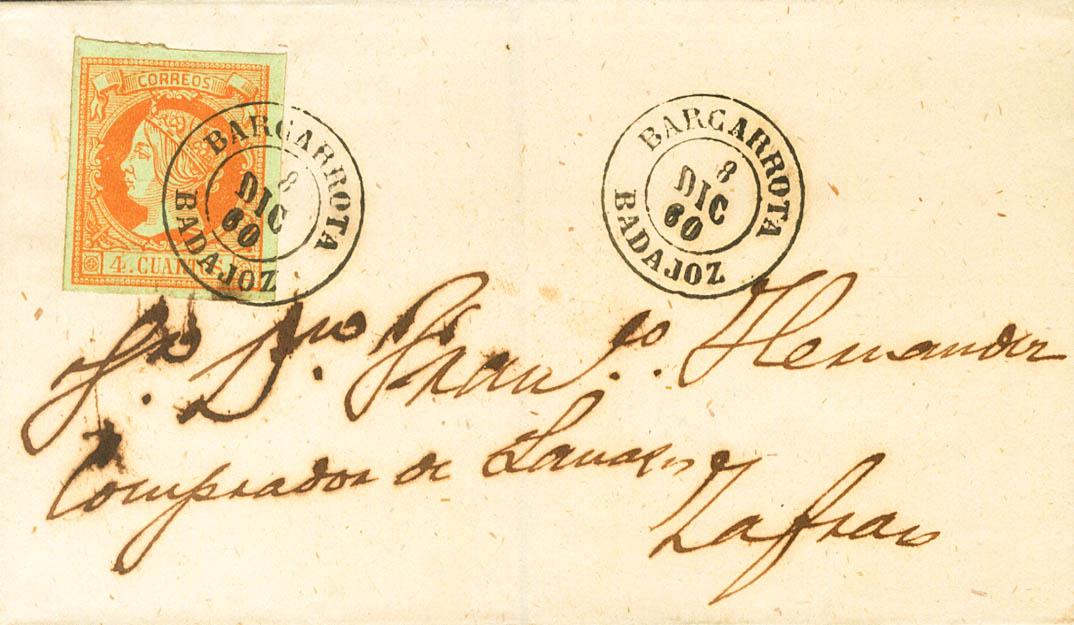 CORREOS
4. CUARTOS
BARCARROTA
8
DIC
60
BADAJOZ
BARCARROTA
8
DIC
60
BADAJOZ
Sr. Dn. Franco. Hernandez
Comprador de Lanas en
Zafra